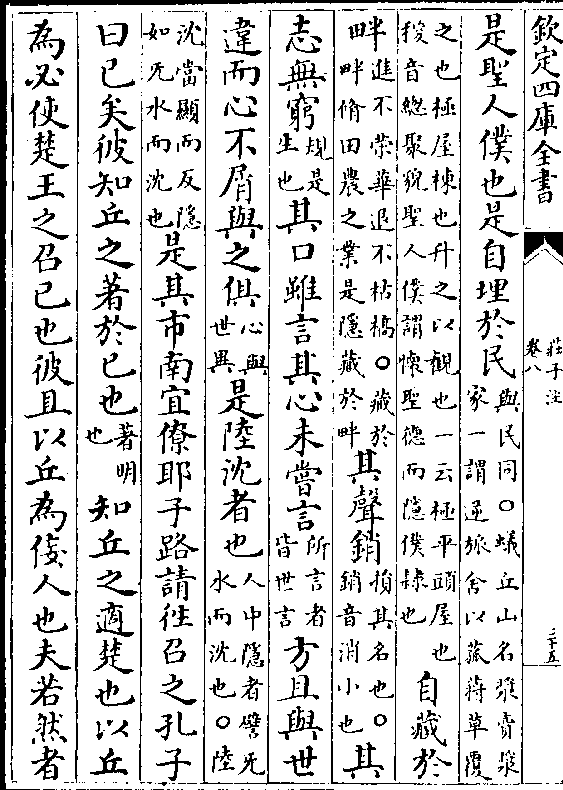 欽定四庫全書
莊子注
卷八
三十五
是聖人僕也是自埋於民與民同○蟻丘山名漿賣漿家一謂逆旅舍以菰蔣草覆
之也極屋棟也升之以觀也一云極平頭屋也稯音總聚貌聖人僕謂懷聖德而隱僕隸也自藏於
畔進不榮華退不枯槁○藏於田畔脩田農之業是隱藏於畔其聲銷損其名也○銷音消小也其
志無窮規是生也其口雖言其心未嘗言所言者皆世言方且與世
違而心不屑與之俱心與世異是陸沈者也人中隱者譬无水而沈也○陸
沈當顯而反隱如无水而沈也是其市南宜僚耶子路請徃召之孔子
曰已矣彼知丘之著於已也著明也知丘之適楚也以丘
為必使楚王之召已也彼且以丘為佞人也夫若然者